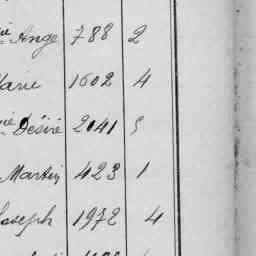 Ange 788 2
Marie 1602 4
Désiré 2041 5
Martin 423 1
Joseph 1972 4